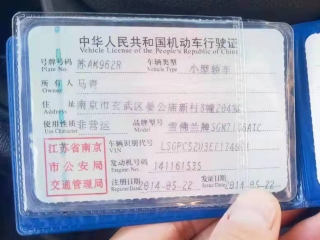 中华人民共和国机动车行驶证
Vehicle License of the People's Republic of China
号牌号码 苏AK962R 车辆类型 小型轿车
Plate No. Vehicle Type
所有人 马青
Owner
住址 南京市玄武区
Address
使用性质 非营运 品牌型号 雪佛兰牌
Use Character Model
江苏省南京 车辆识别代号
VIN
市公安局 发动机号码 141161535
Engine No.
交通管理局 注册日期 2014-05-22 发证日期 2014-05-22
Register Date Issue Date